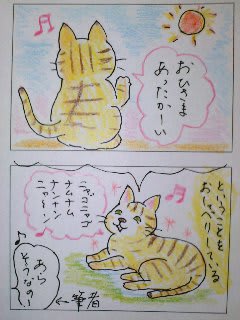 おひさま
あったかーい
ということを
おしゃべりしている
ニャゴニャゴ
ナムナム
ナンナン
ニャーン
あら
そうなの!
←筆者